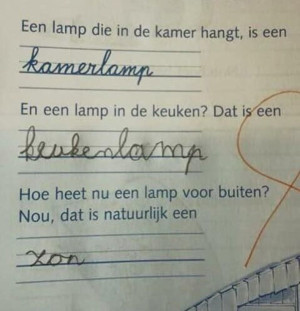 Een lamp die in de kamer hangt, is een
kamerlamp
En een lamp in de keuken? Dat is een
keukenlamp
Hoe heet nu een lamp voor buiten?
Nou, dat is natuurlijk een
zon